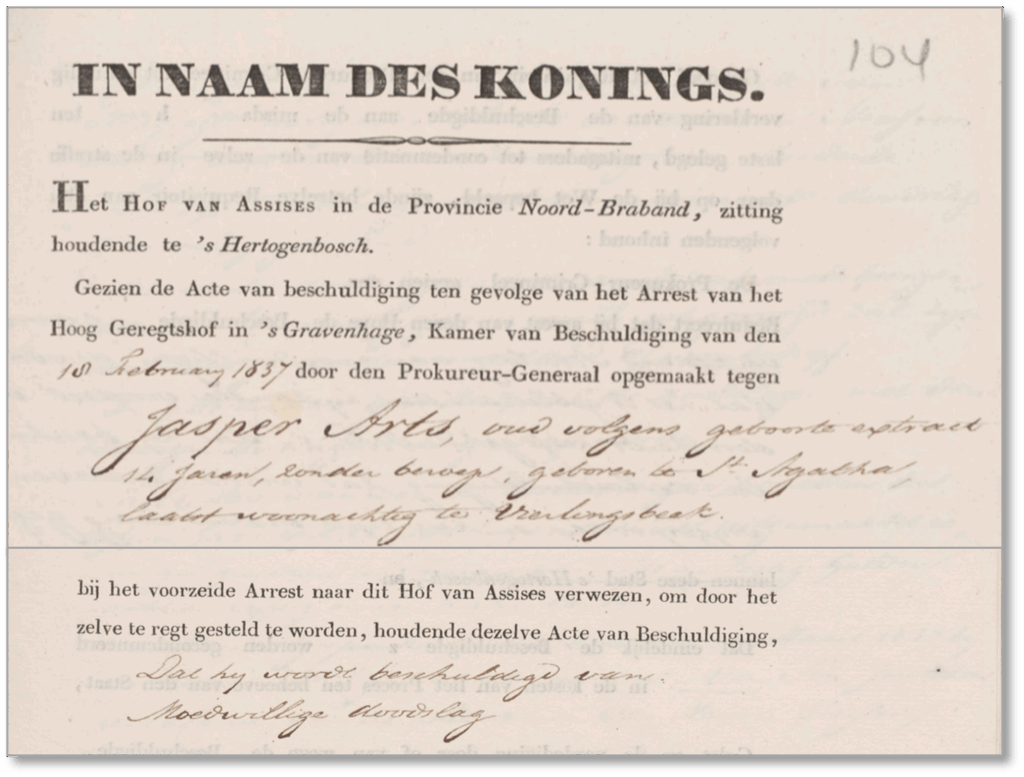 104
IN NAAM DES KONINGS.
Het Hof van Assises in de Provincie Noord-Braband, zitting
houdende te 's Hertogenbosch.
Gezien de Acte van beschuldiging ten gevolge van het Arrest van het
Hoog Geregtshof in 's Gravenhage, Kamer van Beschuldiging van den
18 February 1837 door den Prokureur-Generaal opgemaakt tegen
Jasper Arts, oud volgens geboorte extract
14 Jaren, zonder beroep, geboren te St. Agatha,
laatst woonachtig te Vierlingsbeek.
bij het voorzeide Arrest naar dit Hof van Assises verwezen, om door het
zelve te regt gesteld te worden, houdende dezelve Acte van Beschuldiging,
Dat hy wordt beschuldigd van
Moedwillige doodslag